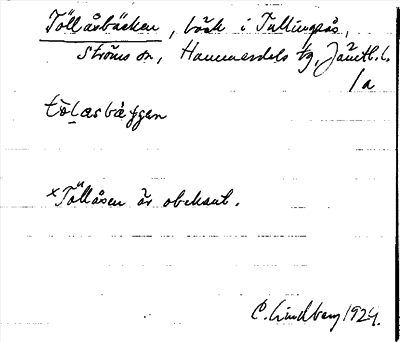 Töllåsbäcken, bäck i Tullingsås,
Ströms sn, Hammerdals tg, Jämtl. l.
1a
tö̀lasbæ̀ggen
×Töllåsen är obekant.
C. Lindberg 1924.